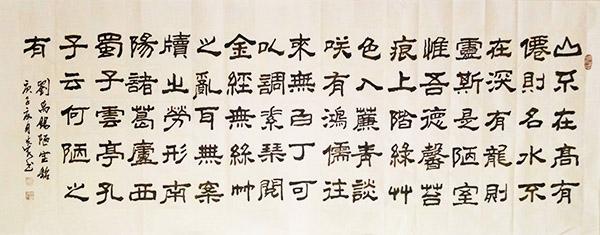 山不在高有
僊則名水不
在深有龍則
靈斯是陋室
惟吾德馨苔
痕上階綠艸
色入簾青談
咲有鴻儒往
來無白丁可
以調素琴閱
金經無絲竹
之亂耳無案
牘之勞形南
陽諸葛廬西
蜀子雲亭孔
子云何陋之
有
劉禹錫陋室銘
庚子